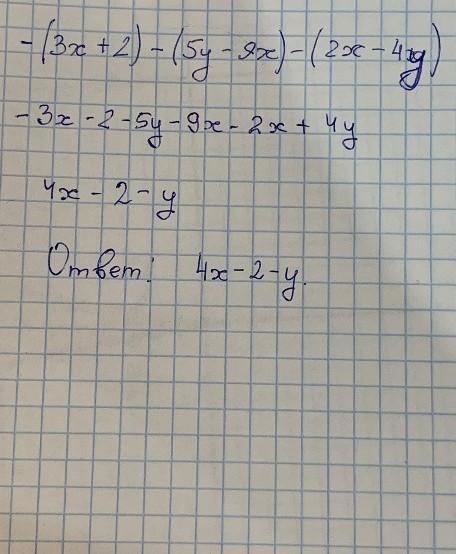 -(3x+2)-(5y-9x)-(2x-4y)
-3x-2-5y-9x-2x+4y
4x-2-y
Ответ: 4x-2-y.